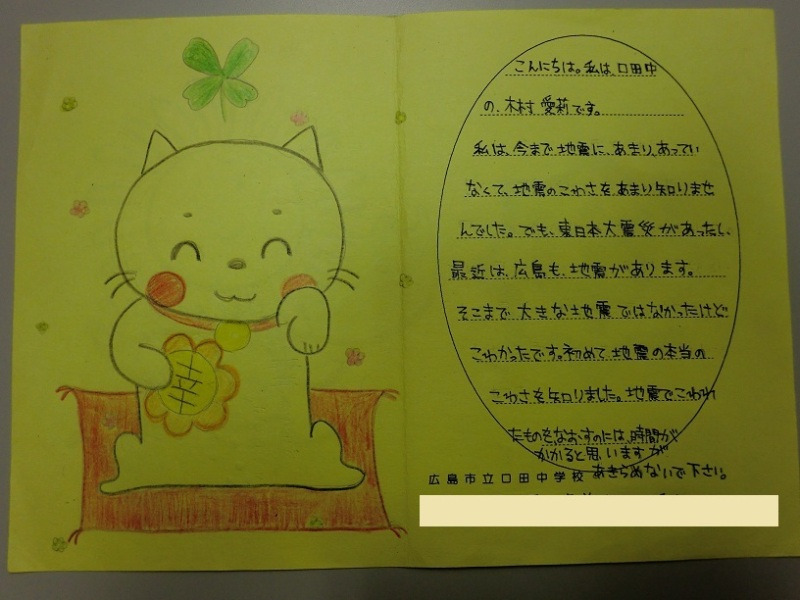 幸
こんにちは。私は、口田中
の、木村 愛莉です。
私は、今まで地震に、あまり、あってい
なくて、地震のこわさを、あまり知りませ
んでした。でも、東日本大震災があったし、
最近は、広島も、地震があります。
そこまで大きな地震ではなかったけど
こわかったです。初めて地震の本当の
こわさを知りました。地震でこわれ
たものをなおすのには、時間が
かかると思いますが
あきらめないで下さい。
広島市立口田中学校